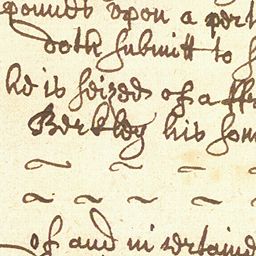 pounds upon a pert
doth submitt to s
he is seized of a ffr
Berkley his son
~ ~ ~ ~
~ ~ ~ ~ ~
of and in certaine